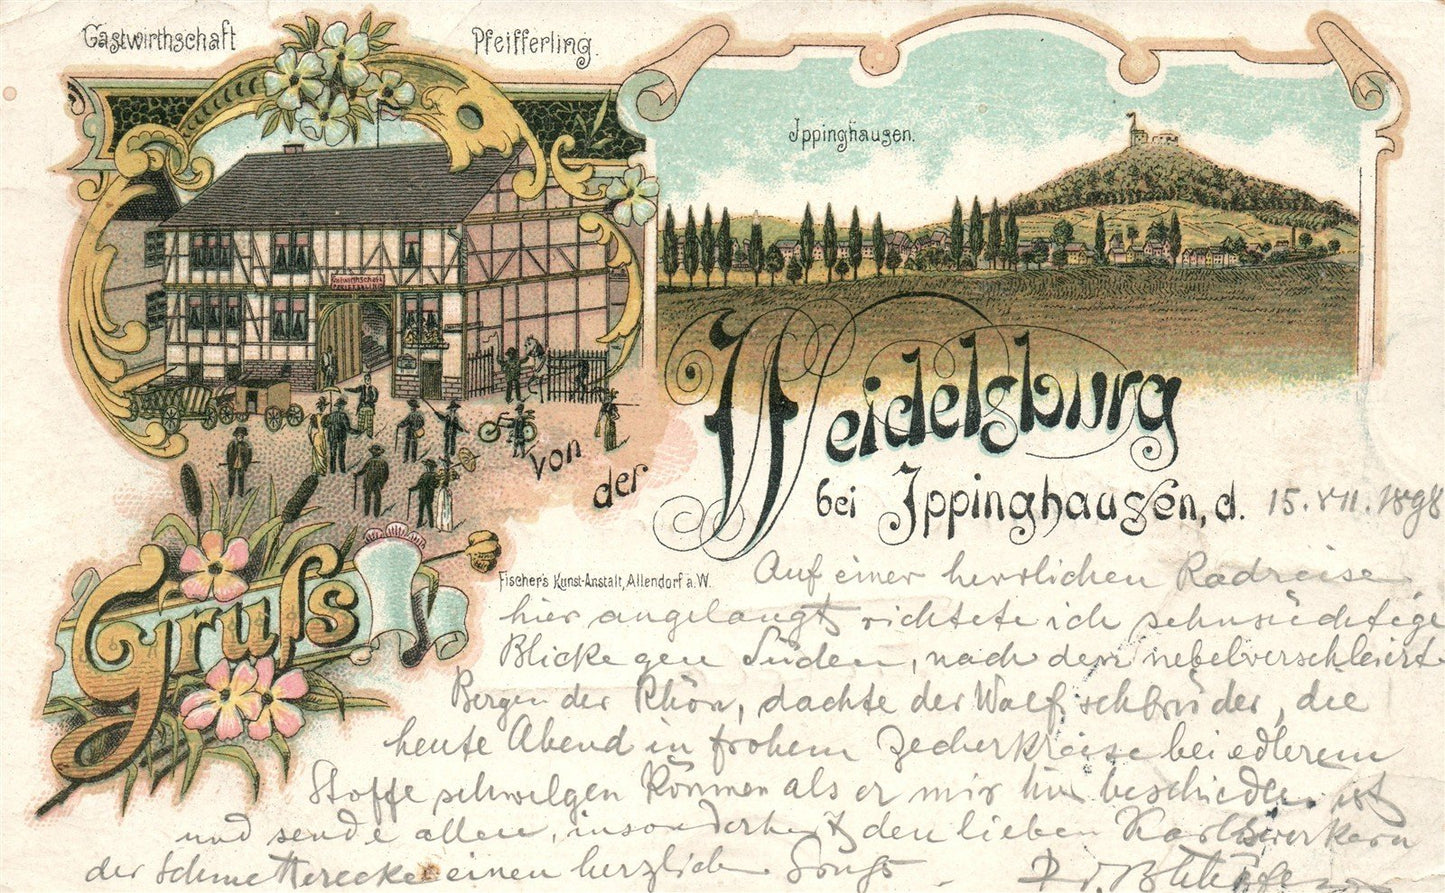 Gastwirthschaft Pfeifferling.
Ippinghausen.
Gastwirthschaft
Gruß
von
der
Weidelsburg
bei Ippinghausen, d. 15. VII. 1898
Fischer's Kunst-Anstalt, Allendorf a. W.
Auf einer herrlichen Radreise
hier angelangt richtete ich sehnsüchtige
Blicke gen Süden, nach den nebelverschleierten
Bergen der Rhön, dachte der Walfischbrüder, die
heute Abend in frohem Zecherkreise bei edlerem
Stoffe schwelgen können als er mir hier beschieden ist
und sende allen, insonderheit den lieben
der Schmetterecke einen herzlichen